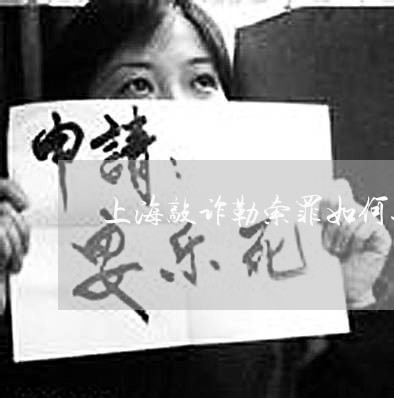 申請:
上海敲诈勒索罪如何
安乐死